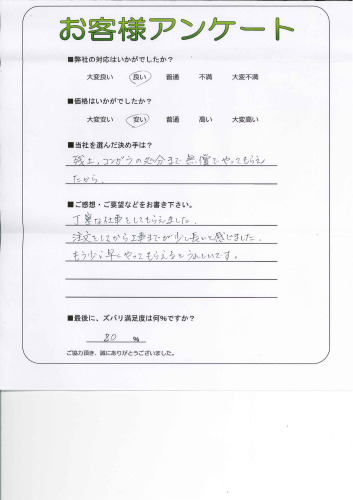 お客様アンケート
■弊社の対応はいかがでしたか?
大変良い 良い 普通 不満 大変不満
■価格はいかがでしたか?
大変安い 安い 普通 高い 大変高い
■当社を選んだ決め手は?
残土、コンガラの処分まで無償でやってもらえ
たから。
■ご感想・ご要望などをお書き下さい。
丁寧な仕事をしてもらえました。
注文をしてから工事までが少し長いと感じました。
もう少し早くやってもらえるとうれしいです。
■最後に、ズバリ満足度は何%ですか?
80 %
ご協力頂き、誠にありがとうございました。